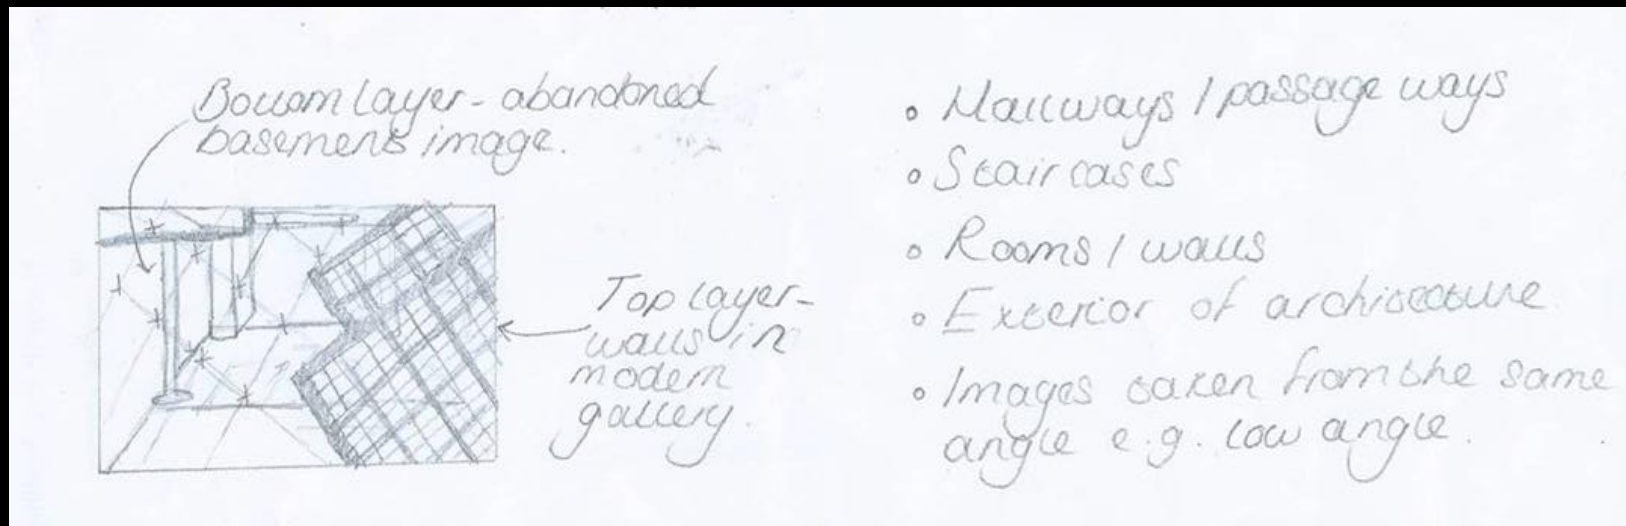 Bottom layer - abandoned
basement image.
Top layer -
walls in
modern
gallery.
• Hallways / passage ways
• Staircases
• Rooms / walls
• Exterior of architecture
• Images taken from the same
angle e.g. low angle.